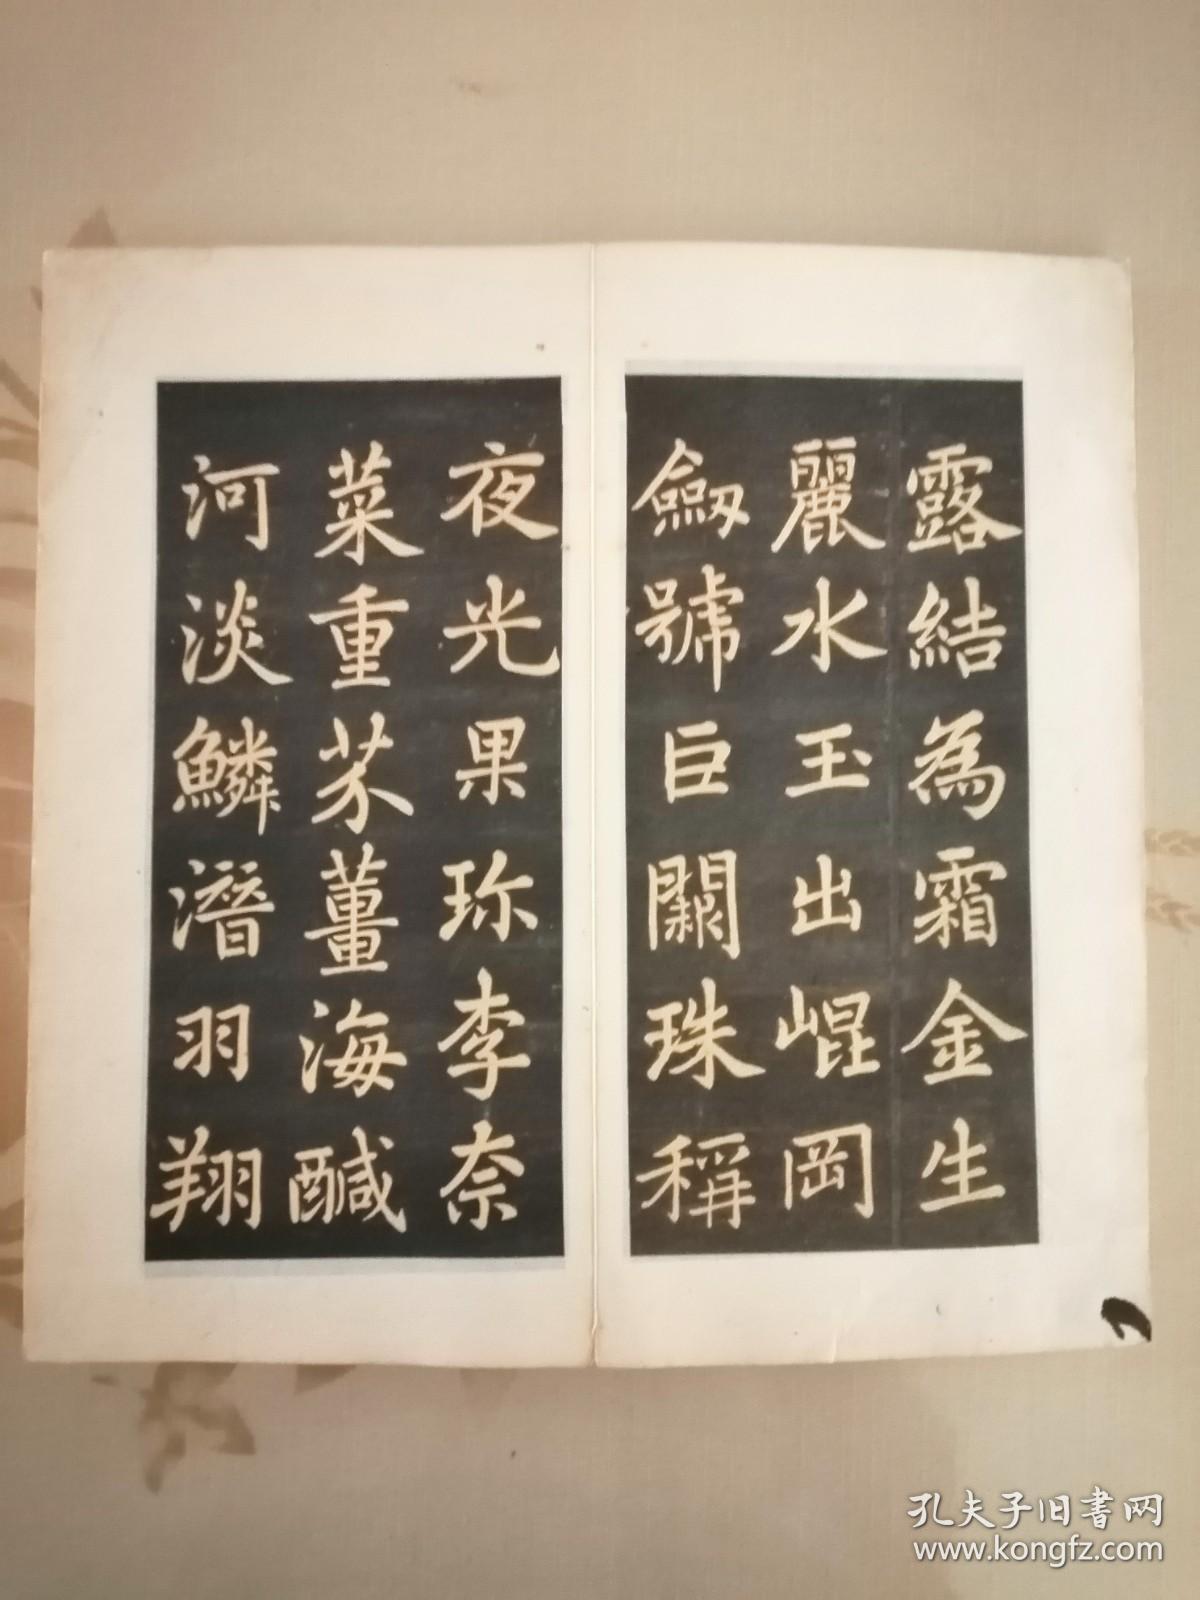 露結為霜金生
麗水玉出崐岡
劔號巨闕珠稱
夜光果珎李柰
菜重芥薑海醎
河淡鱗潛羽翔
孔夫子旧書网
www.kongfz.com